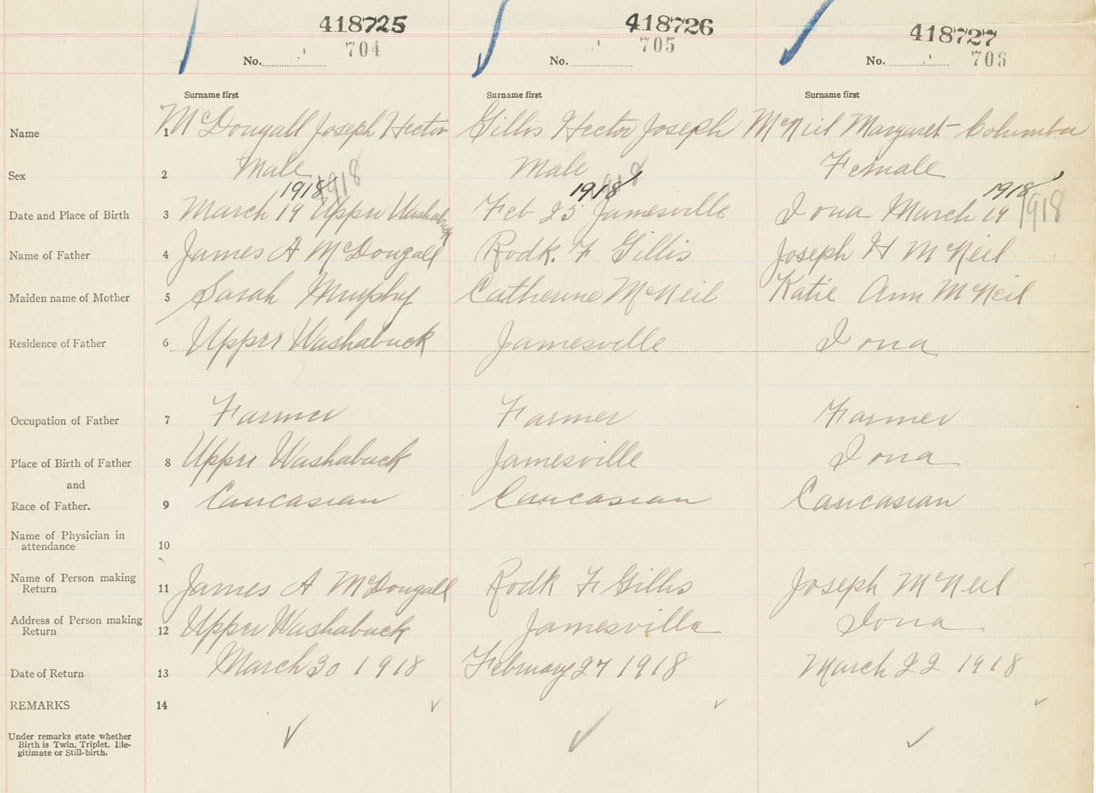 418725 418726 418727
704 705 706
No. No. No.
Surname first Surname first Surname first
Name 1 McDougall Joseph Hector Gillis Hector Joseph McNeil Margaret Columba
Sex 2 Male Male Female
1918 1918 1918 1918 1918 1918
Date and Place of Birth 3 March 19 Upper Washabuck Feb 25 Jamesville Iona March 19
Name of Father 4 James A McDougall Rodk. F Gillis Joseph H McNeil
Maiden name of Mother 5 Sarah Murphy Catherine McNeil Katie Ann McNeil
Residence of Father 6 Upper Washabuck Jamesville Iona
Occupation of Father 7 Farmer Farmer Farmer
Place of Birth of Father 8 Upper Washabuck Jamesville Iona
and
Race of Father. 9 Caucasian Caucasian Caucasian
Name of Physician in
attendance 10
Name of Person making
Return 11 James A McDougall Rodk F Gillis Joseph McNeil
Address of Person making
Return 12 Upper Washabuck Jamesville Iona
Date of Return 13 March 30 1918 February 27 1918 March 22 1918
REMARKS 14
Under remarks state whether
Birth is Twin, Triplet, Ille-
gitimate or Still-birth.